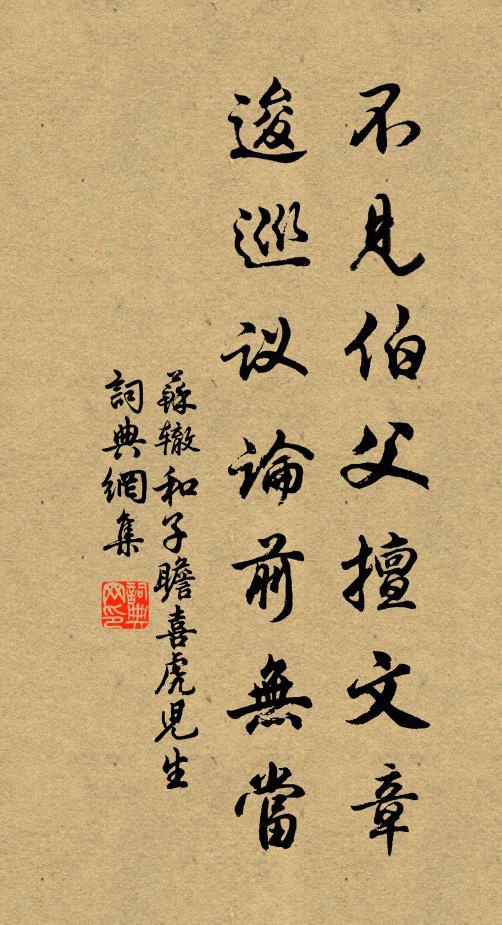 不见伯父擅文章
逡巡议論前無當
蘇辙和子瞻喜虎児生
詞典網集
詞典网印